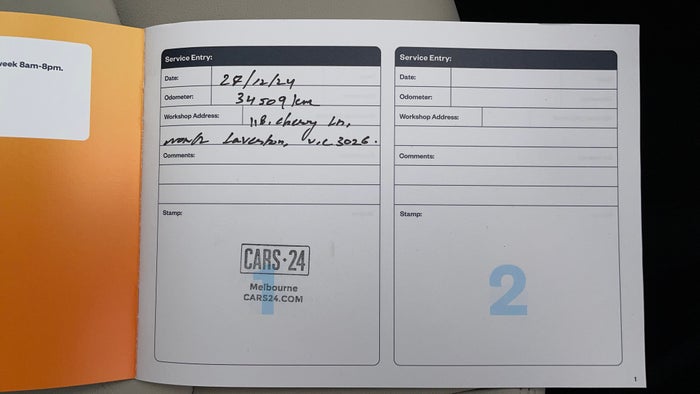 week 8am-8pm.
Service Entry:
Date: 27/12/24
Odometer: 34509 km
Workshop Address: 118, cherry Ln,
north Laverton, vic 3026.
Comments:
Stamp:
CARS·24
1
Melbourne
CARS24.COM
Service Entry:
Date:
Odometer:
Workshop Address:
Comments:
Stamp:
2
1